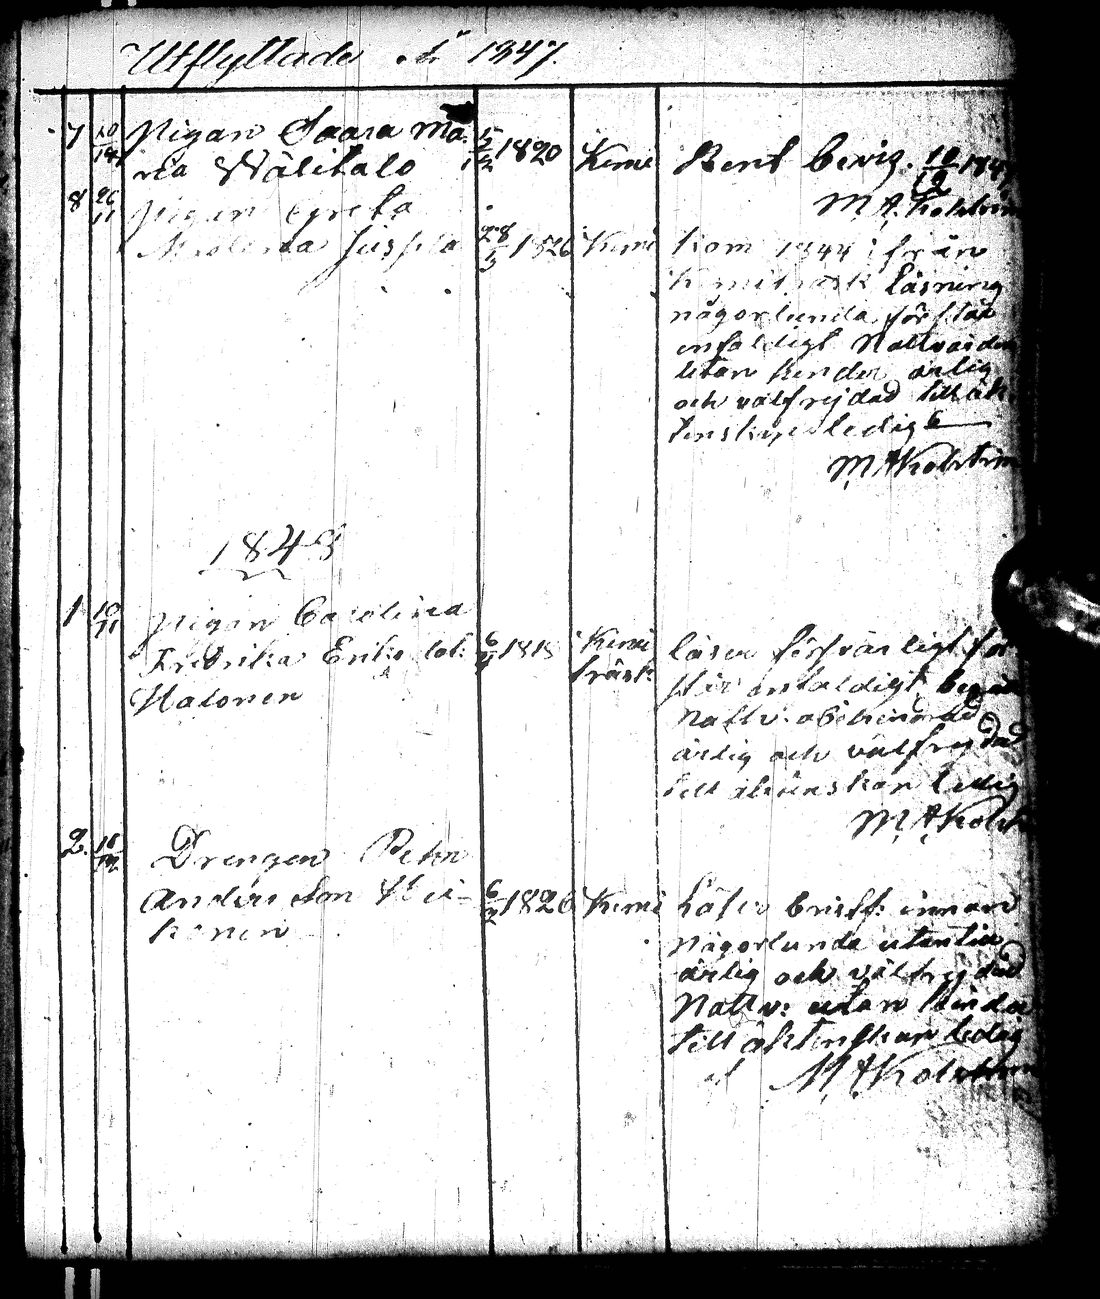 Utflyttade År 1847.
7 10/12 Pigan Saara Ma-
ria Wälitalo 15/12 1820 Kemi Bent bevis. 10/12 1847
M A. Kolström
8 26/11 Pigan Greta
Jussila 28/3 1826 Kemi Kom 1844 från
Kemiträsk läsning
någorlunda, förstår
enfaldigt Nattvarden
utan hinder ärlig
och välfrejdad till äk-
tenskap ledig
M A Kolström
1848
1 10/11 Pigan Carolina
Fredrika Eriks dot: 6/4 1818 Kemi
träsk läser försvarligt för-
Halonen står enfaldigt, begått
Nattv: obehindrad
ärlig och välfrejdad
till äktenskap ledig
M. A. Kolst
2. Drengen Petter
Anders Son Hei- 6/2 1826 Kemi Läser Cristl: innan
konen någorlunda utantill
ärlig och välfrejdad
Nattv: utan hinder
till äktenskap ledig
M A Kolström